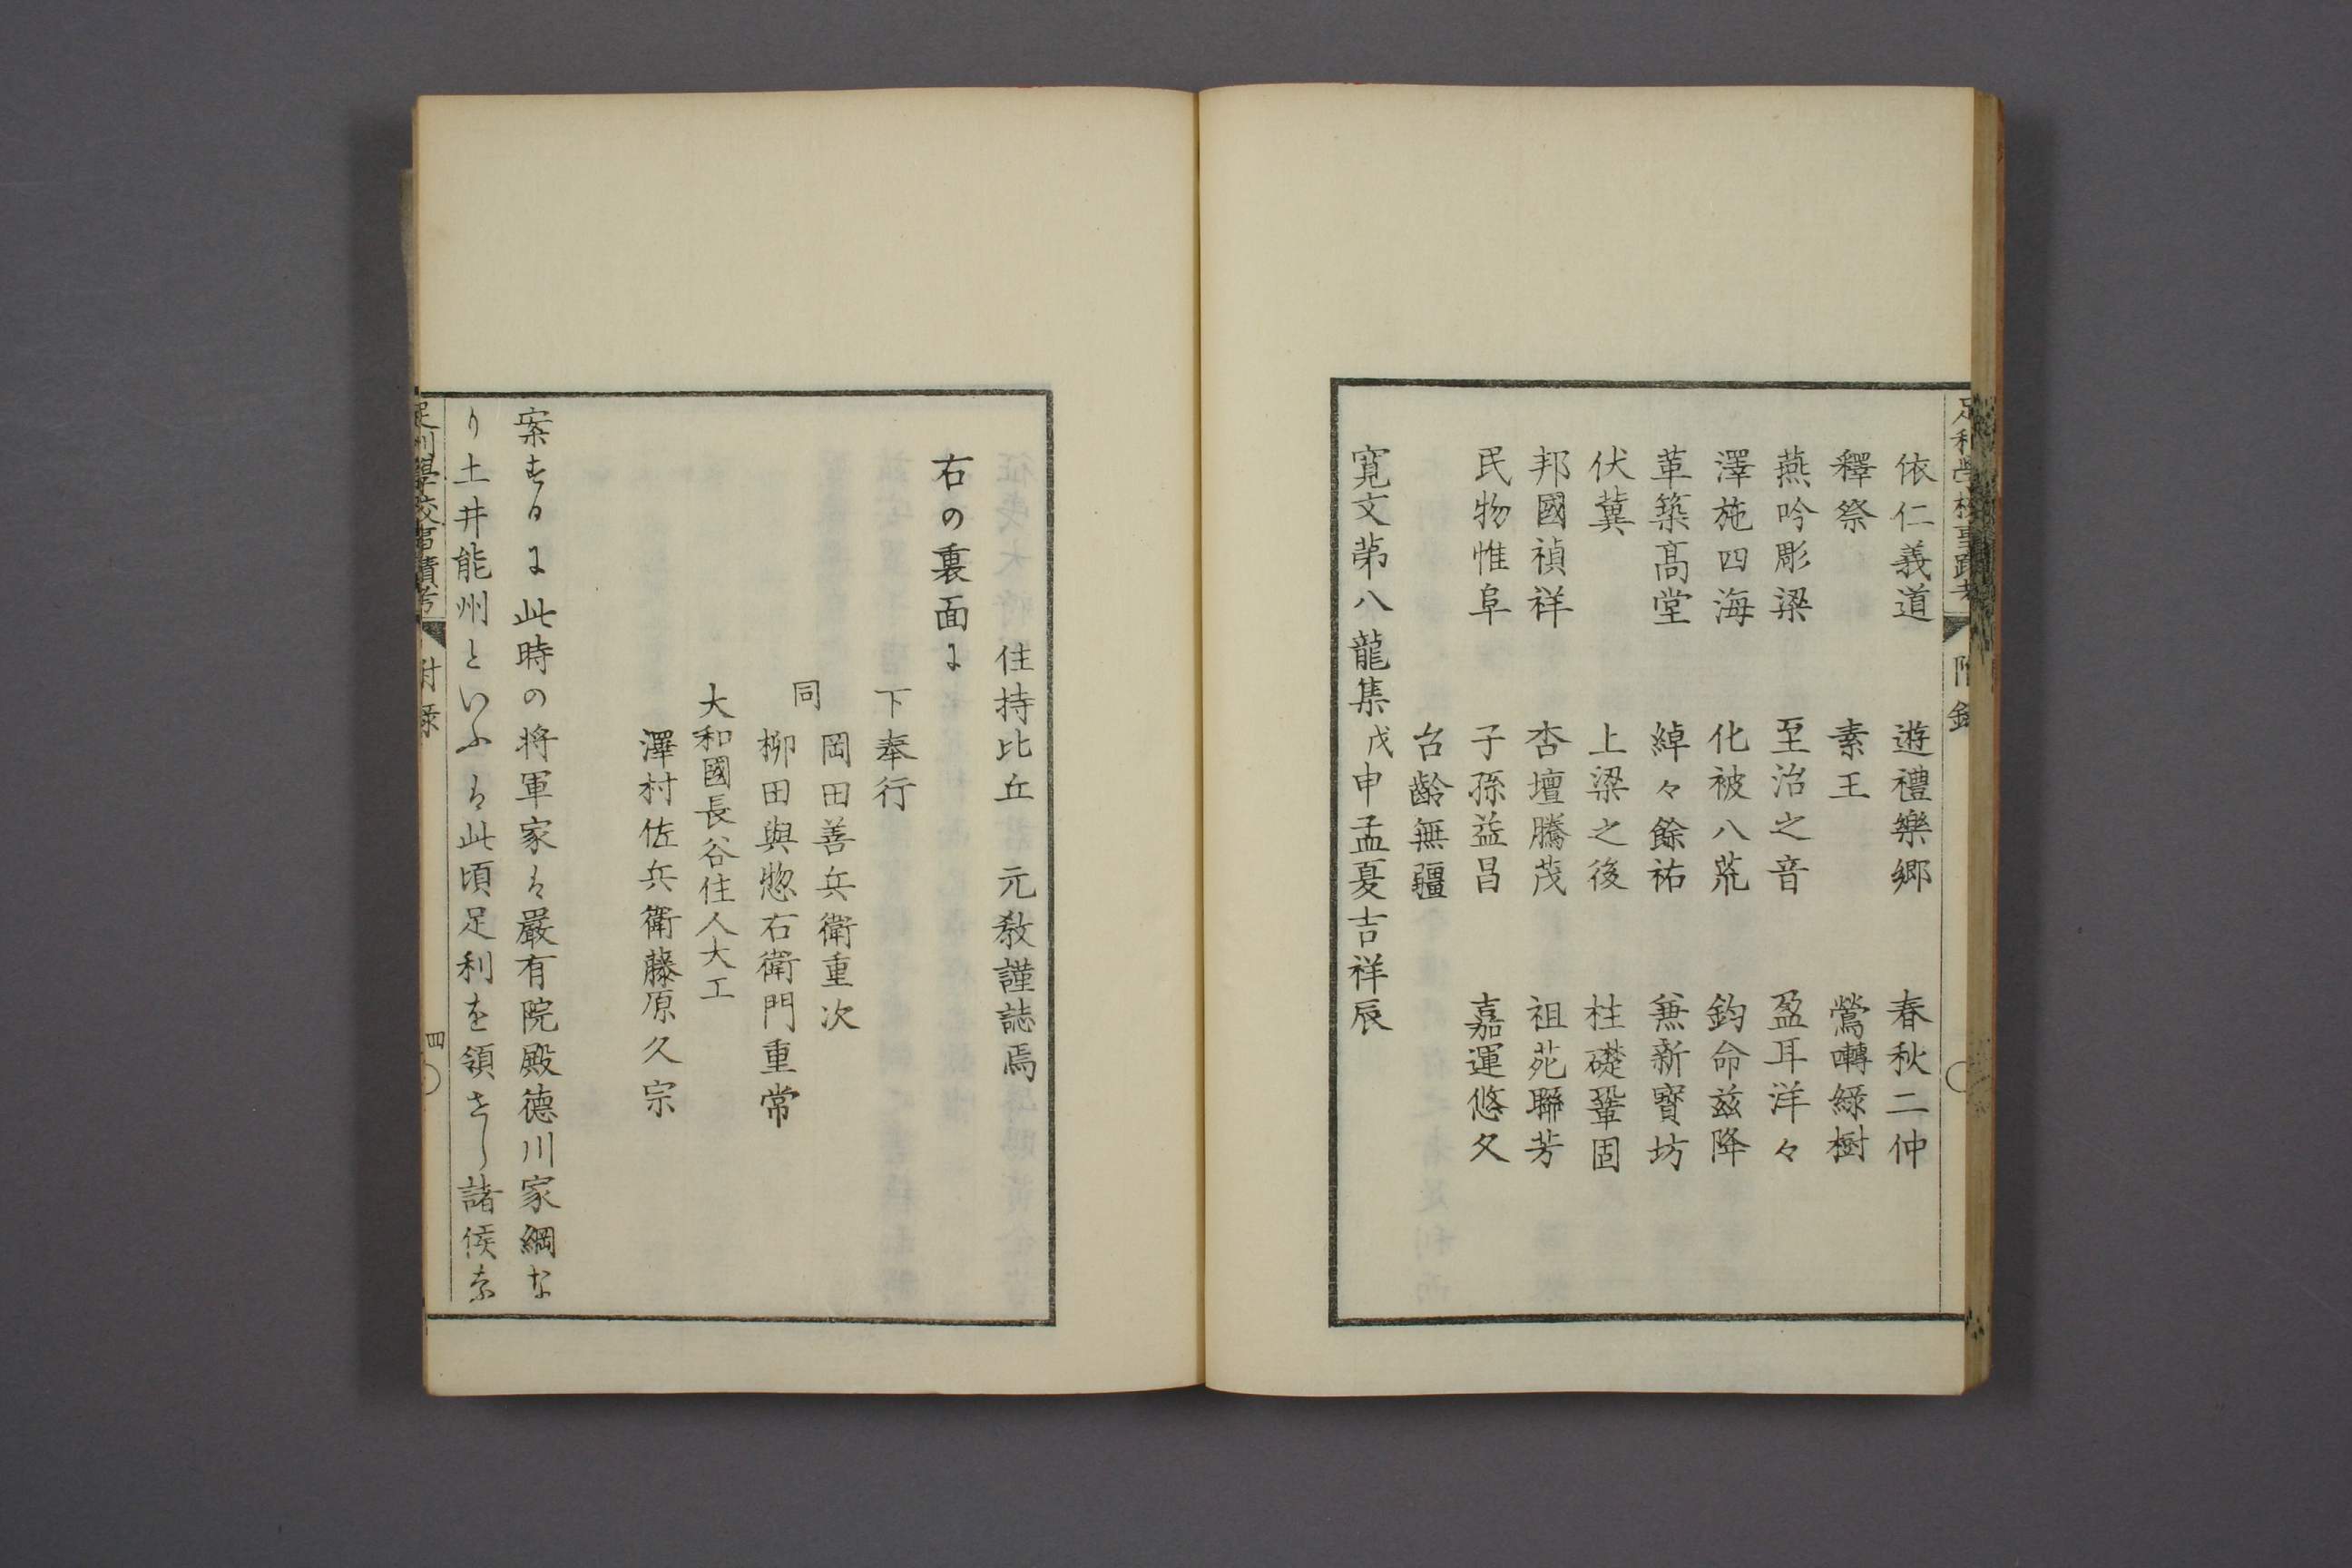 依仁義道　遊禮樂郷　春秋二仲
釋祭　素王　鶯囀綠樹
燕吟彫梁　至治之音　盈耳洋々
澤施四海　化被八荒　鈞命茲降
革築髙堂　綽々餘祐　兼新寳坊
伏冀　上梁之後　柱礎鞏固
邦國禎祥　杏壇騰茂　祖苑聯芳
民物惟阜　子孫益昌　嘉運悠久
台齡無疆
寛文第八龍集戊申孟夏吉祥辰
住持比丘　元教謹誌焉
右の裏面に
下奉行
岡田善兵衛重次
同
柳田與惣右衛門重常
大和國長谷住人大工
澤村佐兵衛藤原久宗
案するに此時の将軍家は嚴有院殿德川家綱な
り土井能州といふは此頃足利を領せし諸侯な
足利學校事蹟考　附録　四